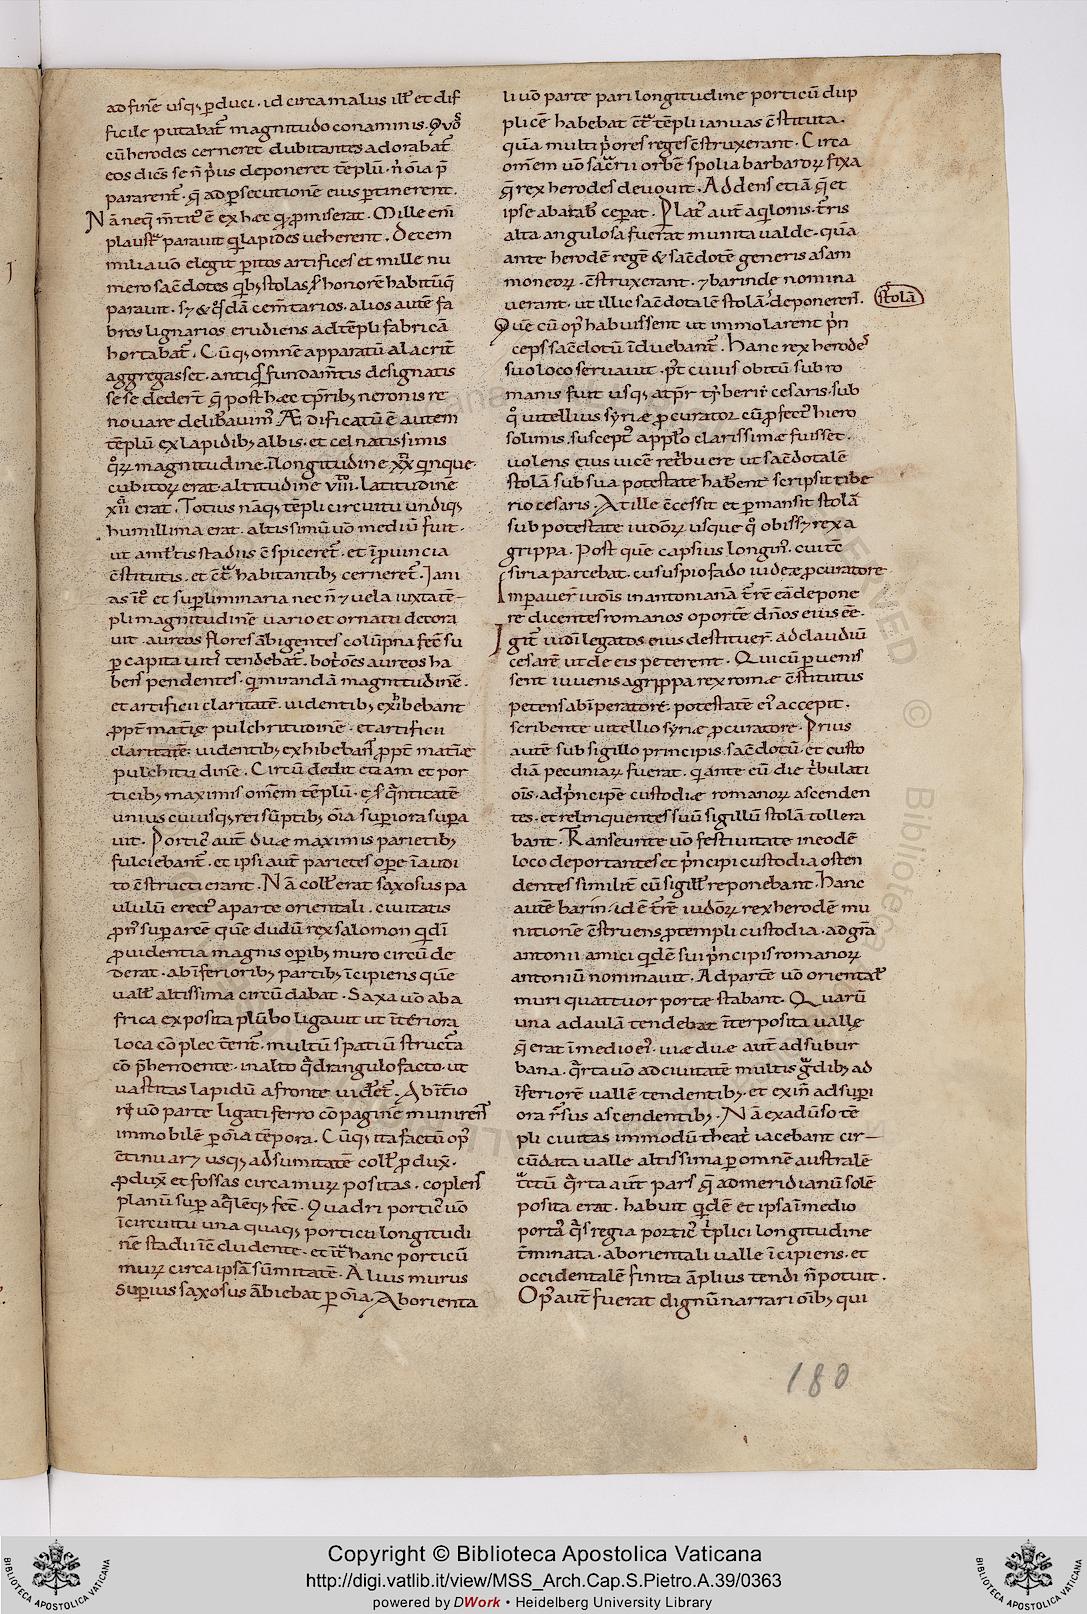 ad finē usq; ꝑduci · id circa malus ill̄ et dif
ficile putabat̄ magnitudo conaminis · Quō
cū herodes cerneret dubitantes adorabat̄
eos dic̄s se n̄ p̄us deponeret tēplū · n̄ oīa p̄
pararent̄ · q̄ ad ꝑsecutionē eius ꝑtinerent ·
Nā neq; m̄tit' ē ex hęc q; ꝓmiserat · Mille eni
plaustra parauit q lapides ueherent · Decem
milia uō elegit ꝑitos artifices et mille nu
mero sac̄dotes qb; stolas
parauit · cem̄tarios · alios autē fa
bros lignarios erudiens ad tēpli fabricā
hortabat̄ · Cūq; omnē apparatū alacrit̄
aggregasset · antiq̄s fundam̄tis designatis
sese dedert̄ q̄ post hæc tp̄rib; neronis re
nouare deliƀauim' Ædificatū ē autem
tēplū ex lapidib; albis · et celnatissimis
qꝝ magnitudine · ī longitudine xx quinque ·
cubitoꝝ erat · altitudinē viii · latitudinē
xii erat · Totius nāq; tēpli circuitu undiq;
humillima erat · altissimū uō mediū fuit ·
ut a m̄ltis stadiis c̄spiceret̄ · et ī ꝓuincia
c̄stitutis · et c̄tra habitantib; cerneret̄ · Iani
as it̄ et suꝑliminaria nec n̄ ⁊ uela iuxta tē-
pli magnitudinē uario et ornatu decora
uit · aureos flores ābigentes colūpna fec̄ su
ꝑ capita uitis tendebat̄ · botōes aureos ha
bens pendentes · q mirandā magnitudinē ·
et artificii claritatē · uidentib; exhibebant
ꝓpt̄ matīę pulchritudinē · et artificii
claritatē : uidentib; exhibebant̄ ꝓpt̄ matīæ
pulchitudinē · Circūdedit etiam et por
ticib; maximis om̄em tēplū · c̄s q̄ntitatē
unius cuiusq; rei sūptib; oīa suꝑiora suꝑa
uit · Portic' aut̄ duæ maximis parietib;
fulciebant̄ · et ipsi aut̄ parietes oꝑe īaudi
to c̄structi erant · Nā coll' erat saxosus pa
ululū erect' a parte orientali · ciuitatis
ꝓn̄ suꝑ arcē quē dudū rex salomon qdī
ꝓuidentia magnis oꝑib; muro circū de
derat · ab īferiorib; partib; īcipiens quē
uall' altissima circū dabat · Saxa uō ab a
frica exposita plūbo ligauit ut īteriora
loca cō plect̄ent̄ · multū spatiū structā
cō p̄hendente · in alto q̄drangulo facto · ut
uastitas lapidū a fronte uidet̄ · Ab īt̄io
ri uō parte ligati ferro cō pagine munirent̄
immobilē ꝑ oīa tēpora · Cūq; ita factū op'
c̄tinuaꝝ usq; ad sumitatē coll' ꝓdux̄ ·
ꝓdux̄ et fossas circa muꝝ positas · coplens
planū suꝑ aq̄lēq; fec̄ · Quadri portic' uō
ī circuitu una quaq; porticu longitudi
nē stadii īc̄ludente · et īt̄ hanc porticū
muꝝ circa ipsā sūmitatē · Alius murus
suꝑius saxosus ābiebat ꝑ oīa · Ab orienta
li uō parte pari longitudine porticū dup
plicē habebat c̄tra tēpli ianuas c̄stituta ·
quā multi p̄ores reges c̄struxerant · Circa
om̄em uō sacrii orbē spolia barbaroꝝ fixa
q̄ rex herodes deuouit · Addens etiā q̄ et
ipse ab arab' ceperat · Plat' aut̄ aq̄lonis t̄ris
alta angulosa fuerat munita ualde · quā
ante herodē regē & sac̄dotē generis asam
moneoꝝ · c̄struxerant · ⁊ barin de nomina
uerant · ut illic sac̄dotalē stolā deponerent̄ ·
stolā
Quē cū op' habuissent ut immolarent p̄n
ceps sac̄dotū īduebant̄ · Hanc rex herodes
suo loco seruauit · p̄t cuius obitū sub ro
manis fuit usq; ad tp̄r tyberii cesaris · sub
q̄ uitellius syriæ ꝓcurator cū ꝓfect' hiero
solimis · suscept' app̄lo clarissimæ fuisset ·
uolens eius uicē ret̄buere ut sac̄dotalē
stolā sub sua potestate haƀent scripsit tibe
rio cesaris · At ille c̄cessit et ꝑmansit stolā
sub potestate iudōꝝ usque q̄ obiss; rex a
grippa · Post quē capsius longin' · cui tē
siria parcebat · cususpio fado iudeæ ꝓcuratore
imꝑauer̄ iudīs in antoniana t̄rē eā depone
re dicentes romanos oportē dn̄os eius eē ·
Igit̄ iudī legatos eius destituer̄ · ad claudiū
cesarē ut de eis peterent · Qui cū ꝑuenis
sent iuuenis agrippa rex romæ c̄stitutus
petens ab īperatorē · potestatē ei' accepit ·
scribente uitellio syriæ ꝓcuratore · Prius
autē sub sigillo principis sac̄dotū · et custo
diā pecuniaꝝ fuerat · q̄ ante eū die t̄bulati
oīs · ad p̄ncipē custodiæ romanoꝝ ascenden
tes · et relinquentes suū sigillū stolā tollera
bant · Transeunte uō festiuitate in eodē
loco deportantes et p̄ncipi custodia osten
dentes similit̄ cū sigill' reponebant · Hanc
autē barin · id ē t̄rē iudōꝝ rex herodē mu
nitionē c̄struens ꝓ templi custodia · ad grā
antonii amici qdē sui p̄ncipis romanoꝝ
antoniū nominauit · Ad partē uō orientalē
muri quattuor portæ stabant · Quarū
una ad aulā tendebat īterposita uallę
q̄ erat ī medio ei' · uiæ duæ aut̄ ad subur
bana · q̄rta uō ad ciuitatē multis gradib; ad
īferiorē uallē tendentib; · et exin̄ ad suꝑi
ora r̄sus ascendentib; · Nā ex aduso tē
pli ciuitas immodū theatri iacebant cir-
cūdata ualle altissima ꝑ omnē australē
tractū q̄rta aut̄ pars q̄ ad meridianū solē
posita erat · habuit qdē et ipsa ī medio
porta' q̄s regia portic' t̄plici longitudine
t̄minata · ab orientali ualle īcipiens · et
occidentalē finita āplius tendi n̄ potuit ·
Op' aut̄ fuerat dignū narrari oīb; qui
180
Copyright © Biblioteca Apostolica Vaticana
http://digi.vatlib.it/view/MSS_Arch.Cap.S.Pietro.A.39/0363
powered by DWork • Heidelberg University Library